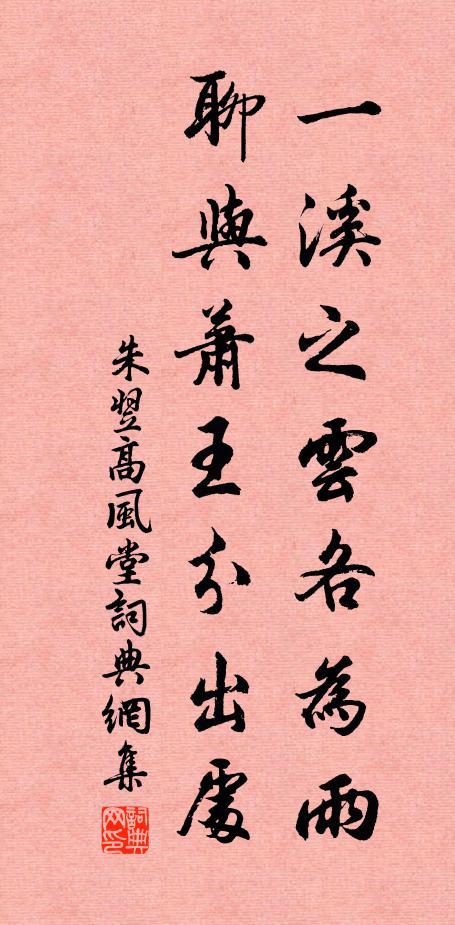 一溪之雲各為雨
聊與蕭王分出處
朱翌高風堂詞典網集
詞典网印